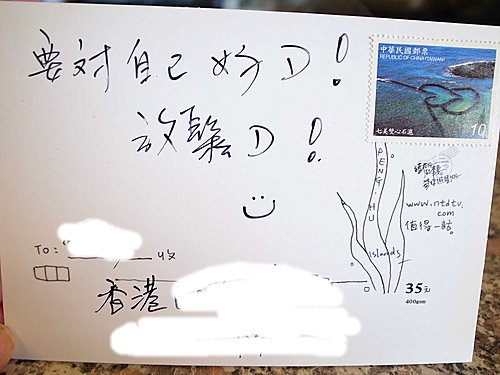 要對自己好D!
放鬆D!
中華民國郵票
REPUBLIC OF CHINA (TAIWAN)
七美雙心石滬
10
PENG-HU
Islands
www.ntdtv.
com
值得一訪。
To:
收
香港
35元
400gsm